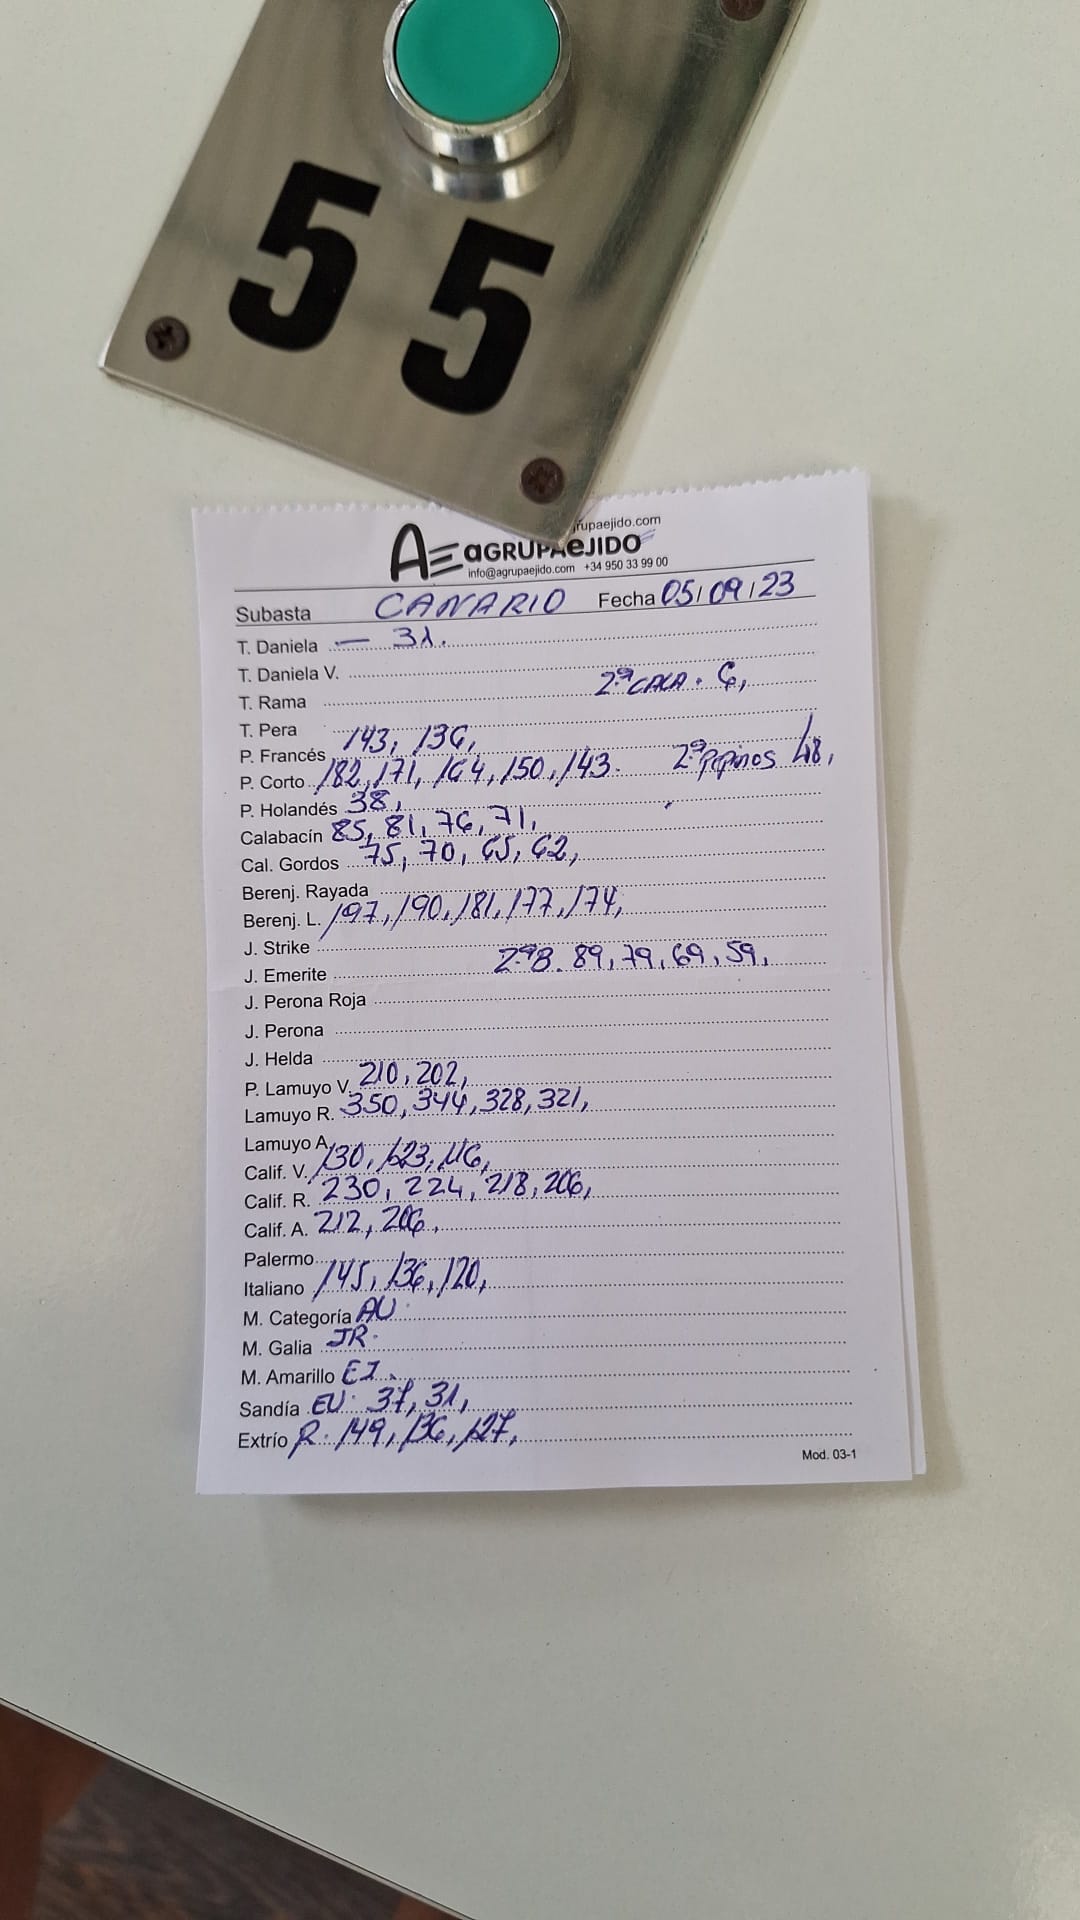 55
rupaejido.com
AE aGRUPAeJIDO
info@agrupaejido.com +34 950 33 99 00
Subasta CANARIO Fecha 05/09/23
T. Daniela — 31.
T. Daniela V.
T. Rama 2ª CALA. 6,
T. Pera
P. Francés 143, 136,
P. Corto 182, 171, 164, 150, 143. 2ª PEPINOS 48,
P. Holandés 38,
Calabacín 85, 81, 76, 71,
Cal. Gordos 75, 70, 65, 62,
Berenj. Rayada
Berenj. L. 197, 190, 181, 177, 174,
J. Strike
J. Emerite 2ªB. 89, 79, 69, 59,
J. Perona Roja
J. Perona
J. Helda
P. Lamuyo V. 210, 202,
Lamuyo R. 350, 344, 328, 321,
Lamuyo A.
Calif. V. 130, 123, 116,
Calif. R. 230, 224, 218, 206,
Calif. A. 212, 206,
Palermo
Italiano 145, 136, 120,
M. Categoría AU.
M. Galia JR.
M. Amarillo EJ.
Sandía EU. 37, 31,
Extrío R. 149, 136, 127,
Mod. 03-1